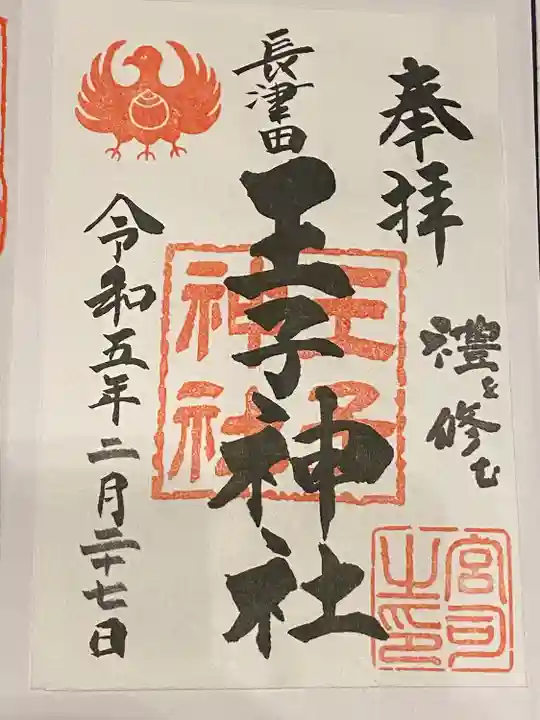 奉拝
禮を修む
長津田
王子神社
令和五年二月二十七日
王子神社
宮司之印